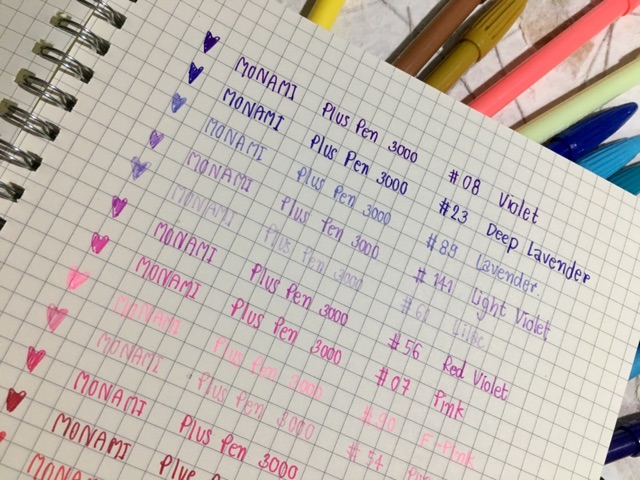 MONAMI Plus Pen 3000 #08 Violet
MONAMI Plus Pen 3000 #23 Deep Lavender
MONAMI Plus Pen 3000 #89 Lavender.
MONAMI Plus Pen 3000 #141 Light Violet
MONAMI Plus Pen 3000 Lilac
MONAMI Plus Pen 3000 #56 Red Violet
MONAMI Plus Pen 3000 #07 Pink
MONAMI Plus Pen 3000 #90 F-Pink
MONAMI Plus Pen 3000 #54
MONAMI Plus Pen 3000
MONAMI Plus
MONAMI